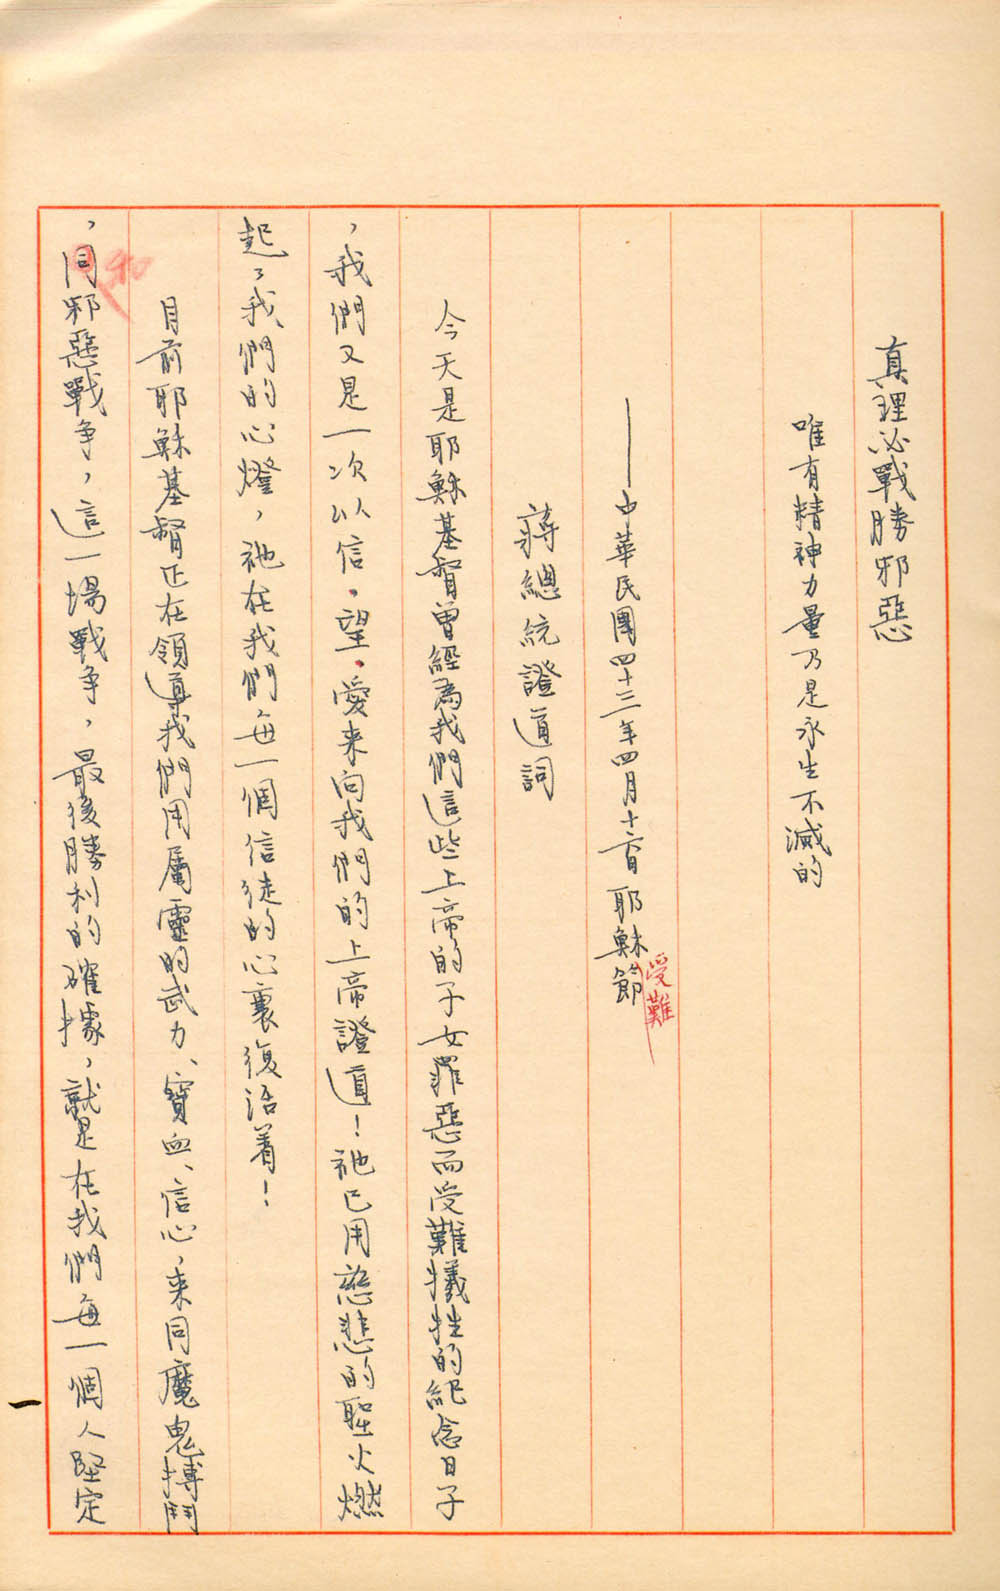 真理必戰勝邪惡
唯有精神力量乃是永生不滅的
——中華民國四十三年四月十六日耶穌受難節
蔣總統證道詞
今天是耶穌基督曾經為我們這些上帝的子女罪惡而受難犧牲的紀念日子
，我們又是一次以信、望、愛來向我們的上帝證道！祂已用慈悲的聖火燃
起了我們的心燈，祂在我們每一個信徒的心裏復活着！
目前耶穌基督正在領導我們用屬靈的武力、寶血、信心，來同魔鬼搏鬥
，和邪惡戰爭，這一場戰爭，最後勝利的確據，就是在我們每一個人堅定
一